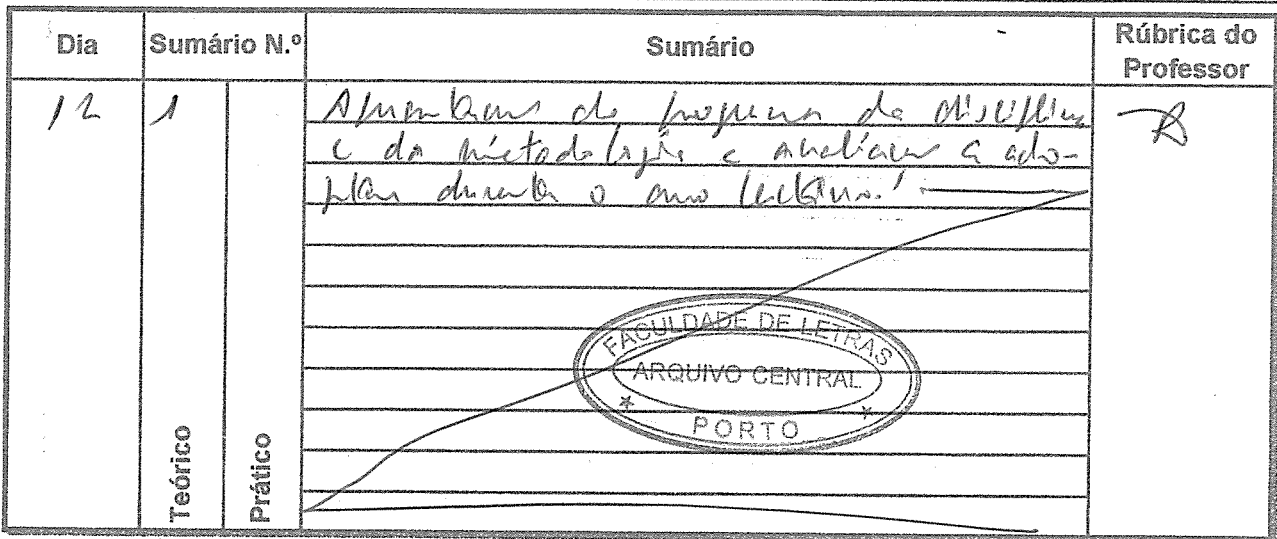 Dia Sumário N.º Sumário Rúbrica do Professor
12 1 Apresentação do programa da disciplina
e da metodologia e avaliação a ado-
ptar durante o ano lectivo.
FACULDADE DE LETRAS
ARQUIVO CENTRAL
PORTO
Teórico
Prático